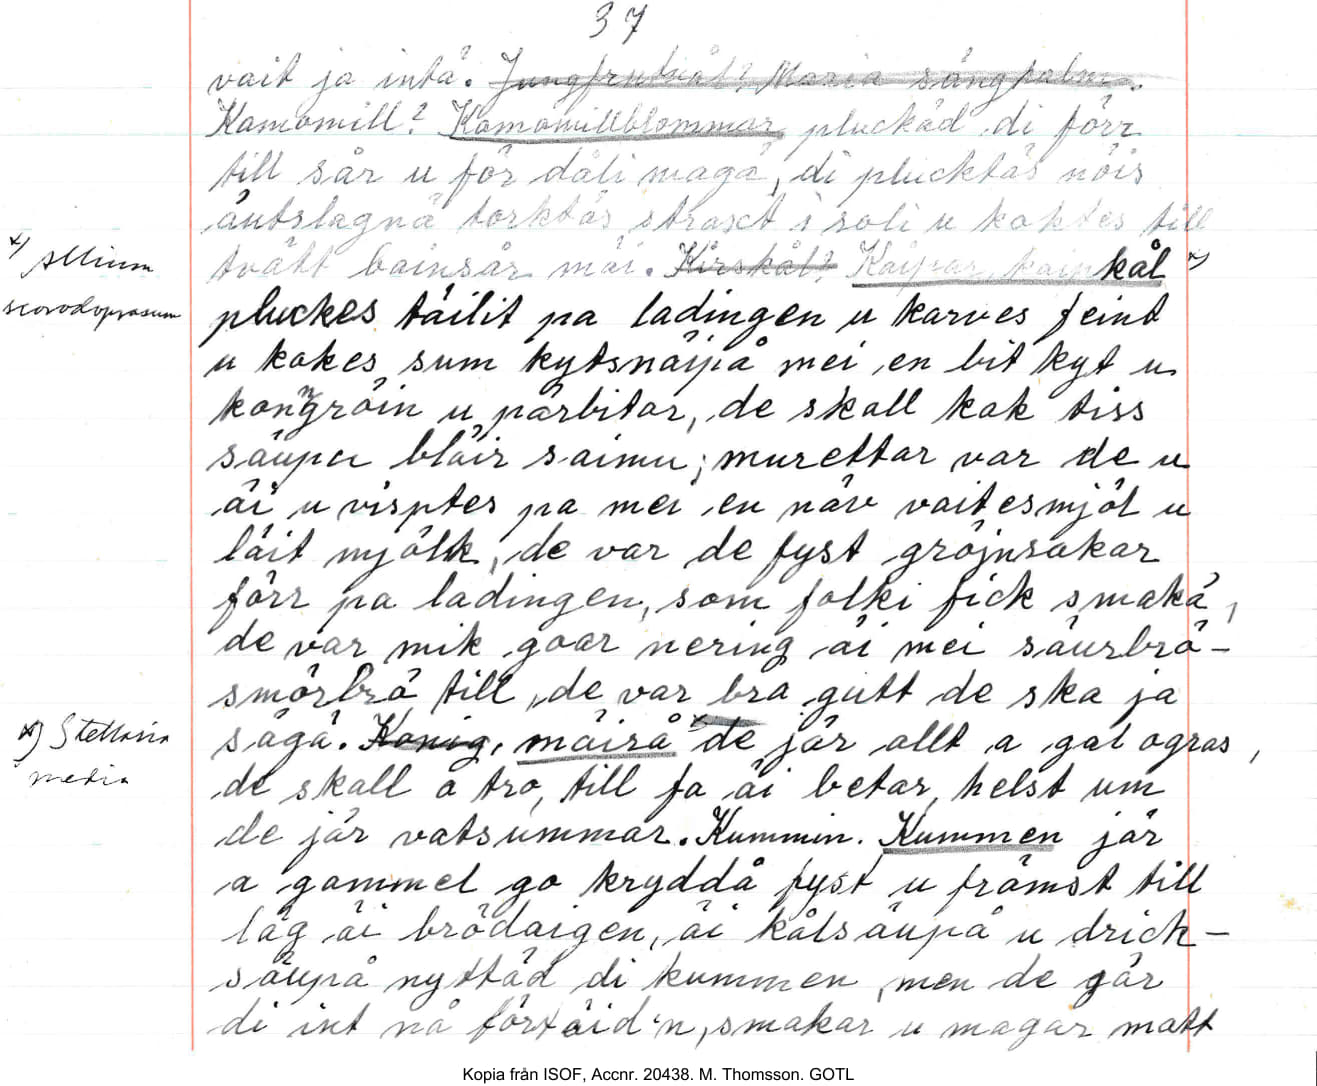 37
vait ja intä. Jungfrutvål? Maria sänghalm.
Kamomill? Kamomillblommar pluckäd di förr
till sår u för dåli magå, di plucktäs nöis
äutslagnä torktäs straxt i soli u koktes till
tvätt bainsår mäi. Kirskål? Kaipar, kaipkål x)
x) Allium
scorodoprasum
pluckes täilit pa ladingen u karves feint
u kokes sum kytsnäipå mei en bit kyt u
kongröin u pärbitar, de skall kok tiss
säupu bläir saimu; murettar var de u
äi u visptes pa mei en näv vaitesmjöl u
läit mjölk, de var de fyst gröjnsakar
förr pa ladingen, som folki fick smakä,
de var mik goar nering äi mei säurbrö-
smörbrö till, de var bra gutt de ska ja
sägä. Konig, mäirå x) de jär allt a gal ogras,
x) Stellaria
media
de skall a tro, till fa äi betar, helst um
de jär vatsummar. Kummin. Kummen jär
a gammel go kryddå fyst u främst till
läg äi brödaigen, äi kålsäupå u drick-
säupå nyttäd di kummen, men de gär
di int nå förtäid'n, smakar u magar matt
Kopia från ISOF, Accnr. 20438. M. Thomsson. GOTL